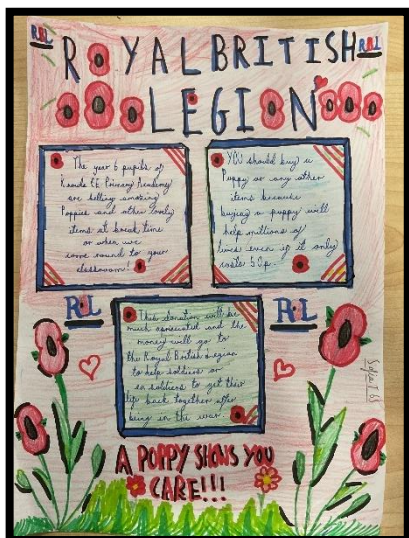 RBL
ROYAL BRITISH
RBL
LEGION
The year 6 pupils of
CE Primary Academy
are selling amazing
Poppies and other lovely
items at break time
or when we
come round to your
classroom!
YOU should buy a
Puppy or any other
items because
buying a puppy will
help millions of
lives even if it only
costs 50p
RBL
RBL
This donation will be
much appreciated and the
money will go to
the Royal British Legion
to help soldiers or
ex soldiers to get their
life back together after
being in the war
A POPPY SHOWS YOU
CARE!!!